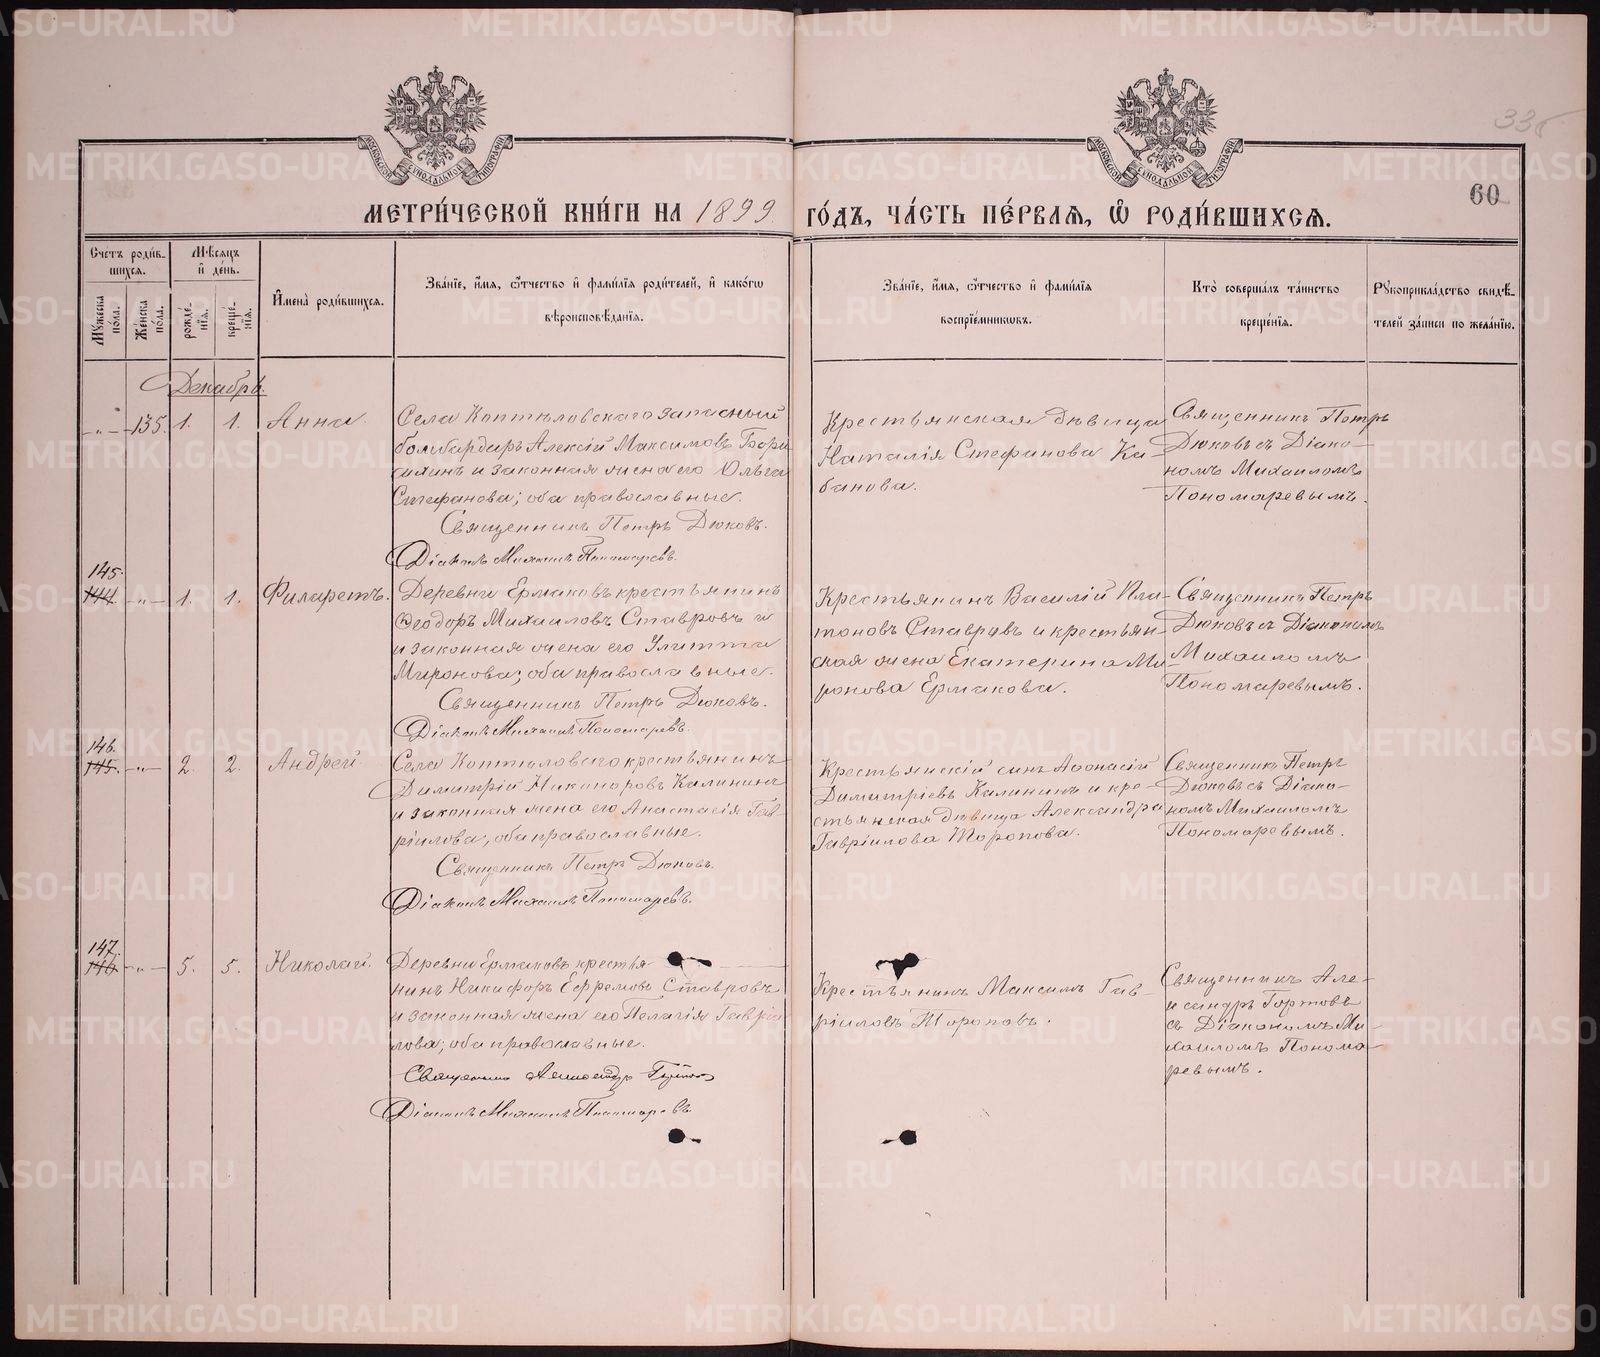 336
60
МЕТРИ́ЧЕСКОЙ КНИ́ГИ НА 1899 ГО́ДЪ, ЧА́СТЬ ПЕ́РВАѦ, Ѡ РОДИ́ВШИХСѦ.
МОСКОВСКОЙ СѴНОДАЛЬНОЙ ТИПОГРАФІИ
МОСКОВСКОЙ СѴНОДАЛЬНОЙ ТИПОГРАФІИ
Счетъ роди́в-
шихсѧ.
Мѹжеска пола.
Же́нска пола.
Мѣсѧцъ
и҆ де́нь.
рожде́-нїѧ.
креще́-нїѧ.
И҆мена̀ роди́вшихсѧ.
Зва́нїе, и҆́мѧ, ѻ҆́тчество и҆ фами́лїѧ роди́телей, и҆ како́гѡ
вѣроисповѣ́данїѧ.
Зва́нїе, и҆́мѧ, ѻ҆́тчество и҆ фами́лїѧ
воспрїе́мникѡвъ.
Кто̀ соверша́лъ та́инство
креще́нїѧ.
Рѹкоприкла́дство свидѣ́-
телей за́писи по жела́нїю.
Декабрь.
-„- 135. 1. 1. Анна.
Села Коптѣловскаго запасный
бомбардиръ Алексій Максимовъ
и законная жена его Ольга
Стефанова; оба православные.
Священникъ Петръ Дюковъ.
Діаконъ Михаилъ Пономаревъ.
Крестьянская дѣвица
Наталія Стефанова Ка-
банова.
Священникъ Петръ
Дюковъ съ Діако-
номъ Михаиломъ
Пономаревымъ.
145.
144. -„- 1. 1. Филаретъ.
Деревни Ермаковъ крестьянинъ
Ѳеодоръ Михаиловъ Ставровъ и
законная жена его Улитта
Миронова; оба православные.
Священникъ Петръ Дюковъ.
Діаконъ Михаилъ Пономаревъ.
Крестьянинъ Василій Пла-
тоновъ Ставровъ и крестьян-
ская жена Екатерина Ми-
ронова Ермакова.
Священникъ Петръ
Дюковъ съ Діакономъ
Михаиломъ
Пономаревымъ.
146.
145. -„- 2. 2. Андрей.
Села Коптѣловскаго крестьянинъ
Димитрій Никаноровъ Калининъ
и законная жена его Анастасія Гав-
ріилова; оба православные.
Священникъ Петръ Дюковъ.
Діаконъ Михаилъ Пономаревъ.
Крестьянскій сынъ Аѳонасій
Димитріевъ Калининъ и кре-
стьянская дѣвица Александра
Гавріилова Торопова.
Священникъ Петръ
Дюковъ съ Діако-
номъ Михаиломъ
Пономаревымъ.
147.
146. -„- 5. 5. Николай.
Деревни Ермаковъ крестья-
нинъ Никифоръ Ефремовъ Ставровъ
и законная жена его Пелагія Гавріи-
лова; оба православные.
Священникъ Александръ
Діаконъ Михаилъ Пономаревъ
Крестьянинъ Максимъ Гав-
ріиловъ Тороповъ.
Священникъ Але-
ксандръ Гортовъ
съ Діакономъ Ми-
хаиломъ Понома-
ревымъ.
METRIKI.GASO-URAL.RU